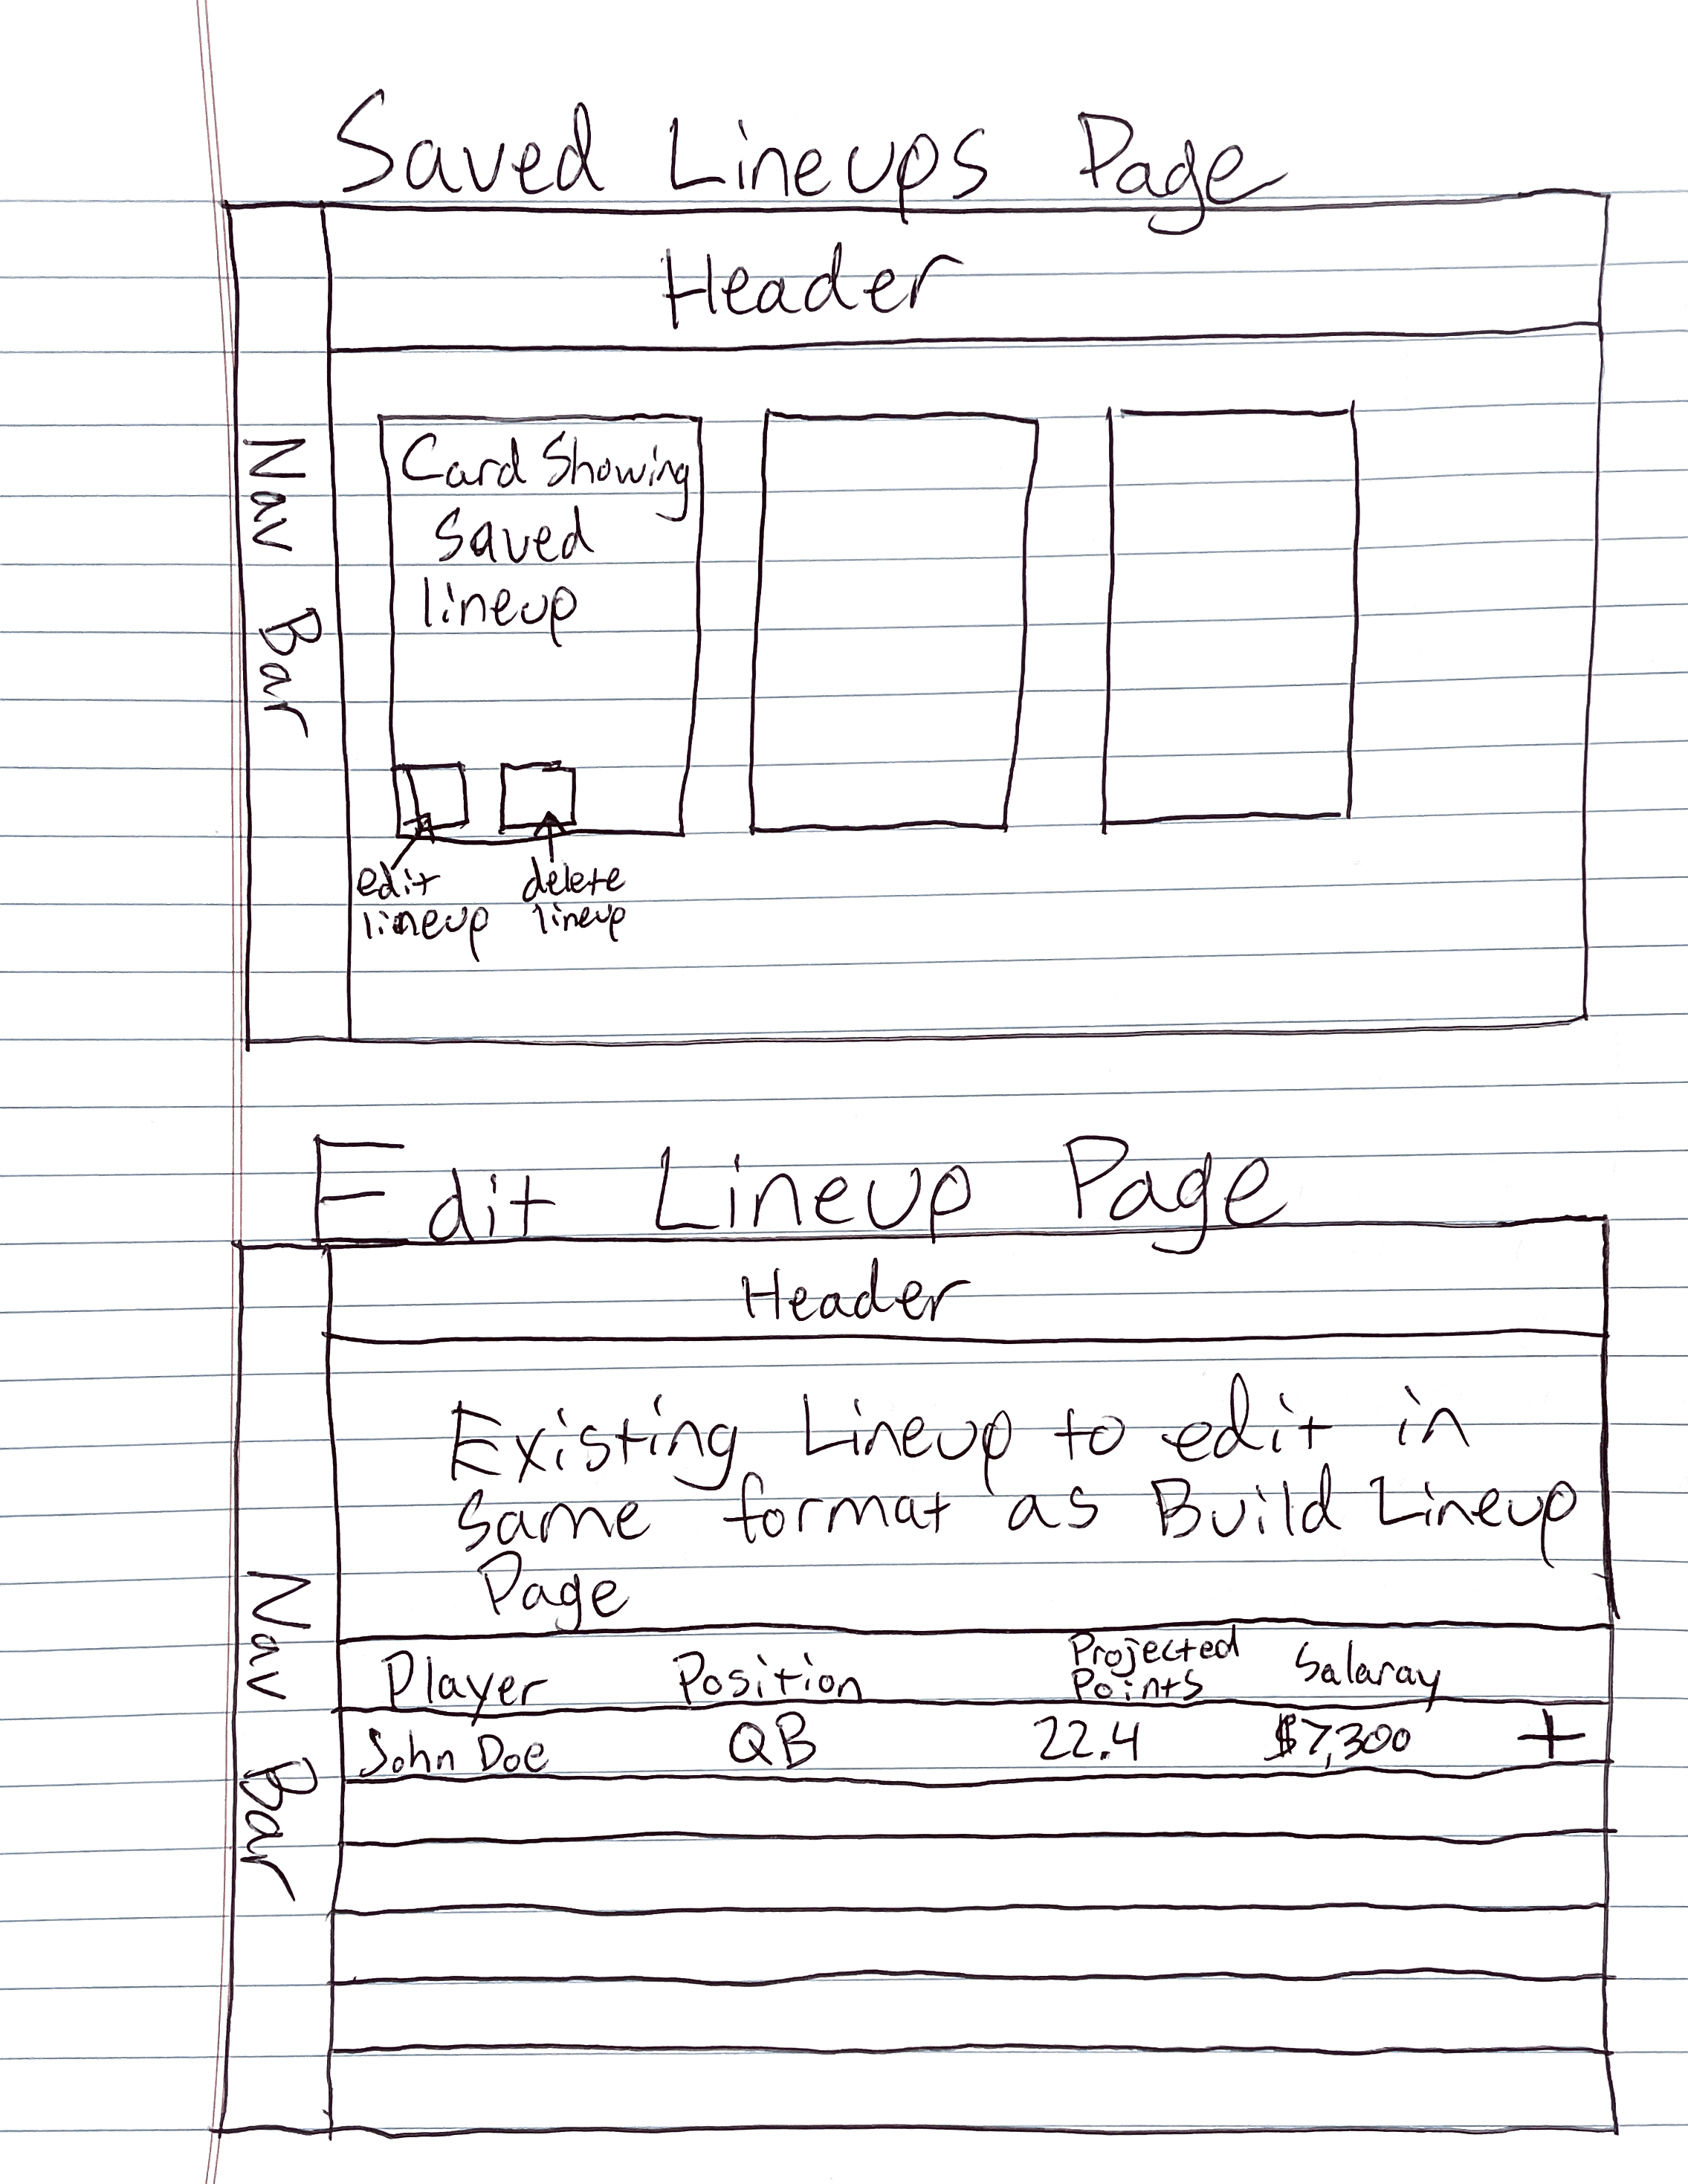 Saved Lineups Page
Header
Nav Bar
Card Showing
Saved
lineup
edit
lineup
delete
lineup
Edit Lineup Page
Header
Nav Bar
Existing Lineup to edit in
same format as Build Lineup
Page
Player Position Projected Points Salaray
John Doe QB 22.4 $7,300 +